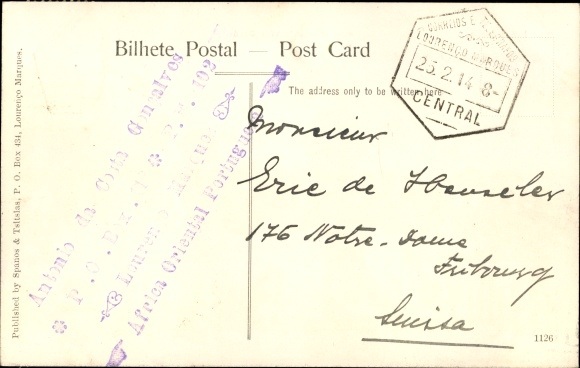 Bilhete Postal — Post Card
The address only to be written here
CORREIOS E
LOURENÇO MARQUES
25.2.14 8-
CENTRAL
Monsieur
Eric de Haenseler
176 Notre-Dame
Fribourg
Suissa
1126
Antonio da Costa Gonçalves
P. O. BX.
Lourenço Marques
Africa Oriental Portugueza
Published by Spanos & Tsitsias, P. O. Box 434, Lourenço Marques.